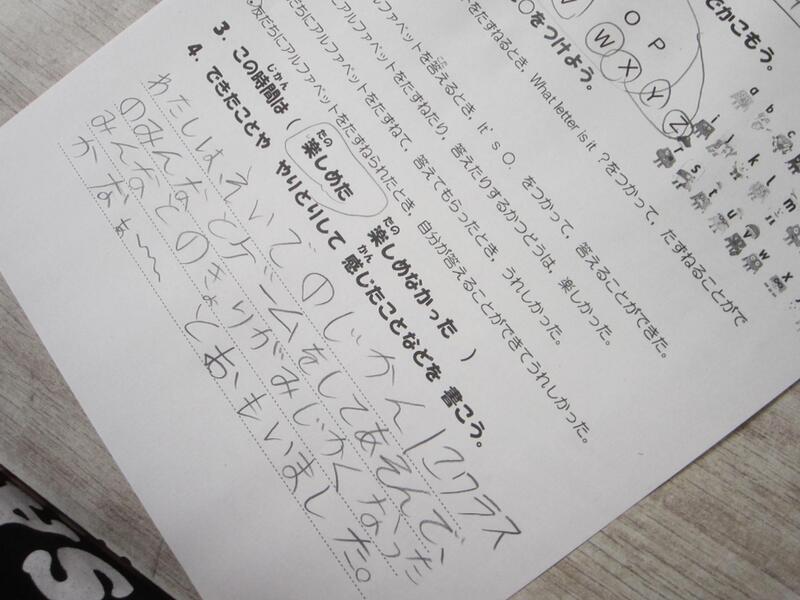 でかこもう。
O P
V W X Y Z
をつけよう。
a b c
i j k l m
r s t u v w x
をたずねるとき，What letter is it ?をつかって，たずねることがで
ァベットを答えるとき，It's O. をつかって，答えることができた。
にアルファベットをたずねたり，答えたりするかつどうは，楽しかった。
だちにアルファベットをたずねて，答えてもらったとき，うれしかった。
友だちにアルファベットをたずねられたとき，自分が答えることができてうれしかった。
3. この時間は（ 楽しめた 楽しめなかった ）
4. できたことや やりとりして 感じたことなどを 書こう。
わたしは、えいごのじかんにクラス
のみんなとゲームをしてあそんで、
みんなとのきょりがみじかくなった
かなぁ〜〜 とおもいました。